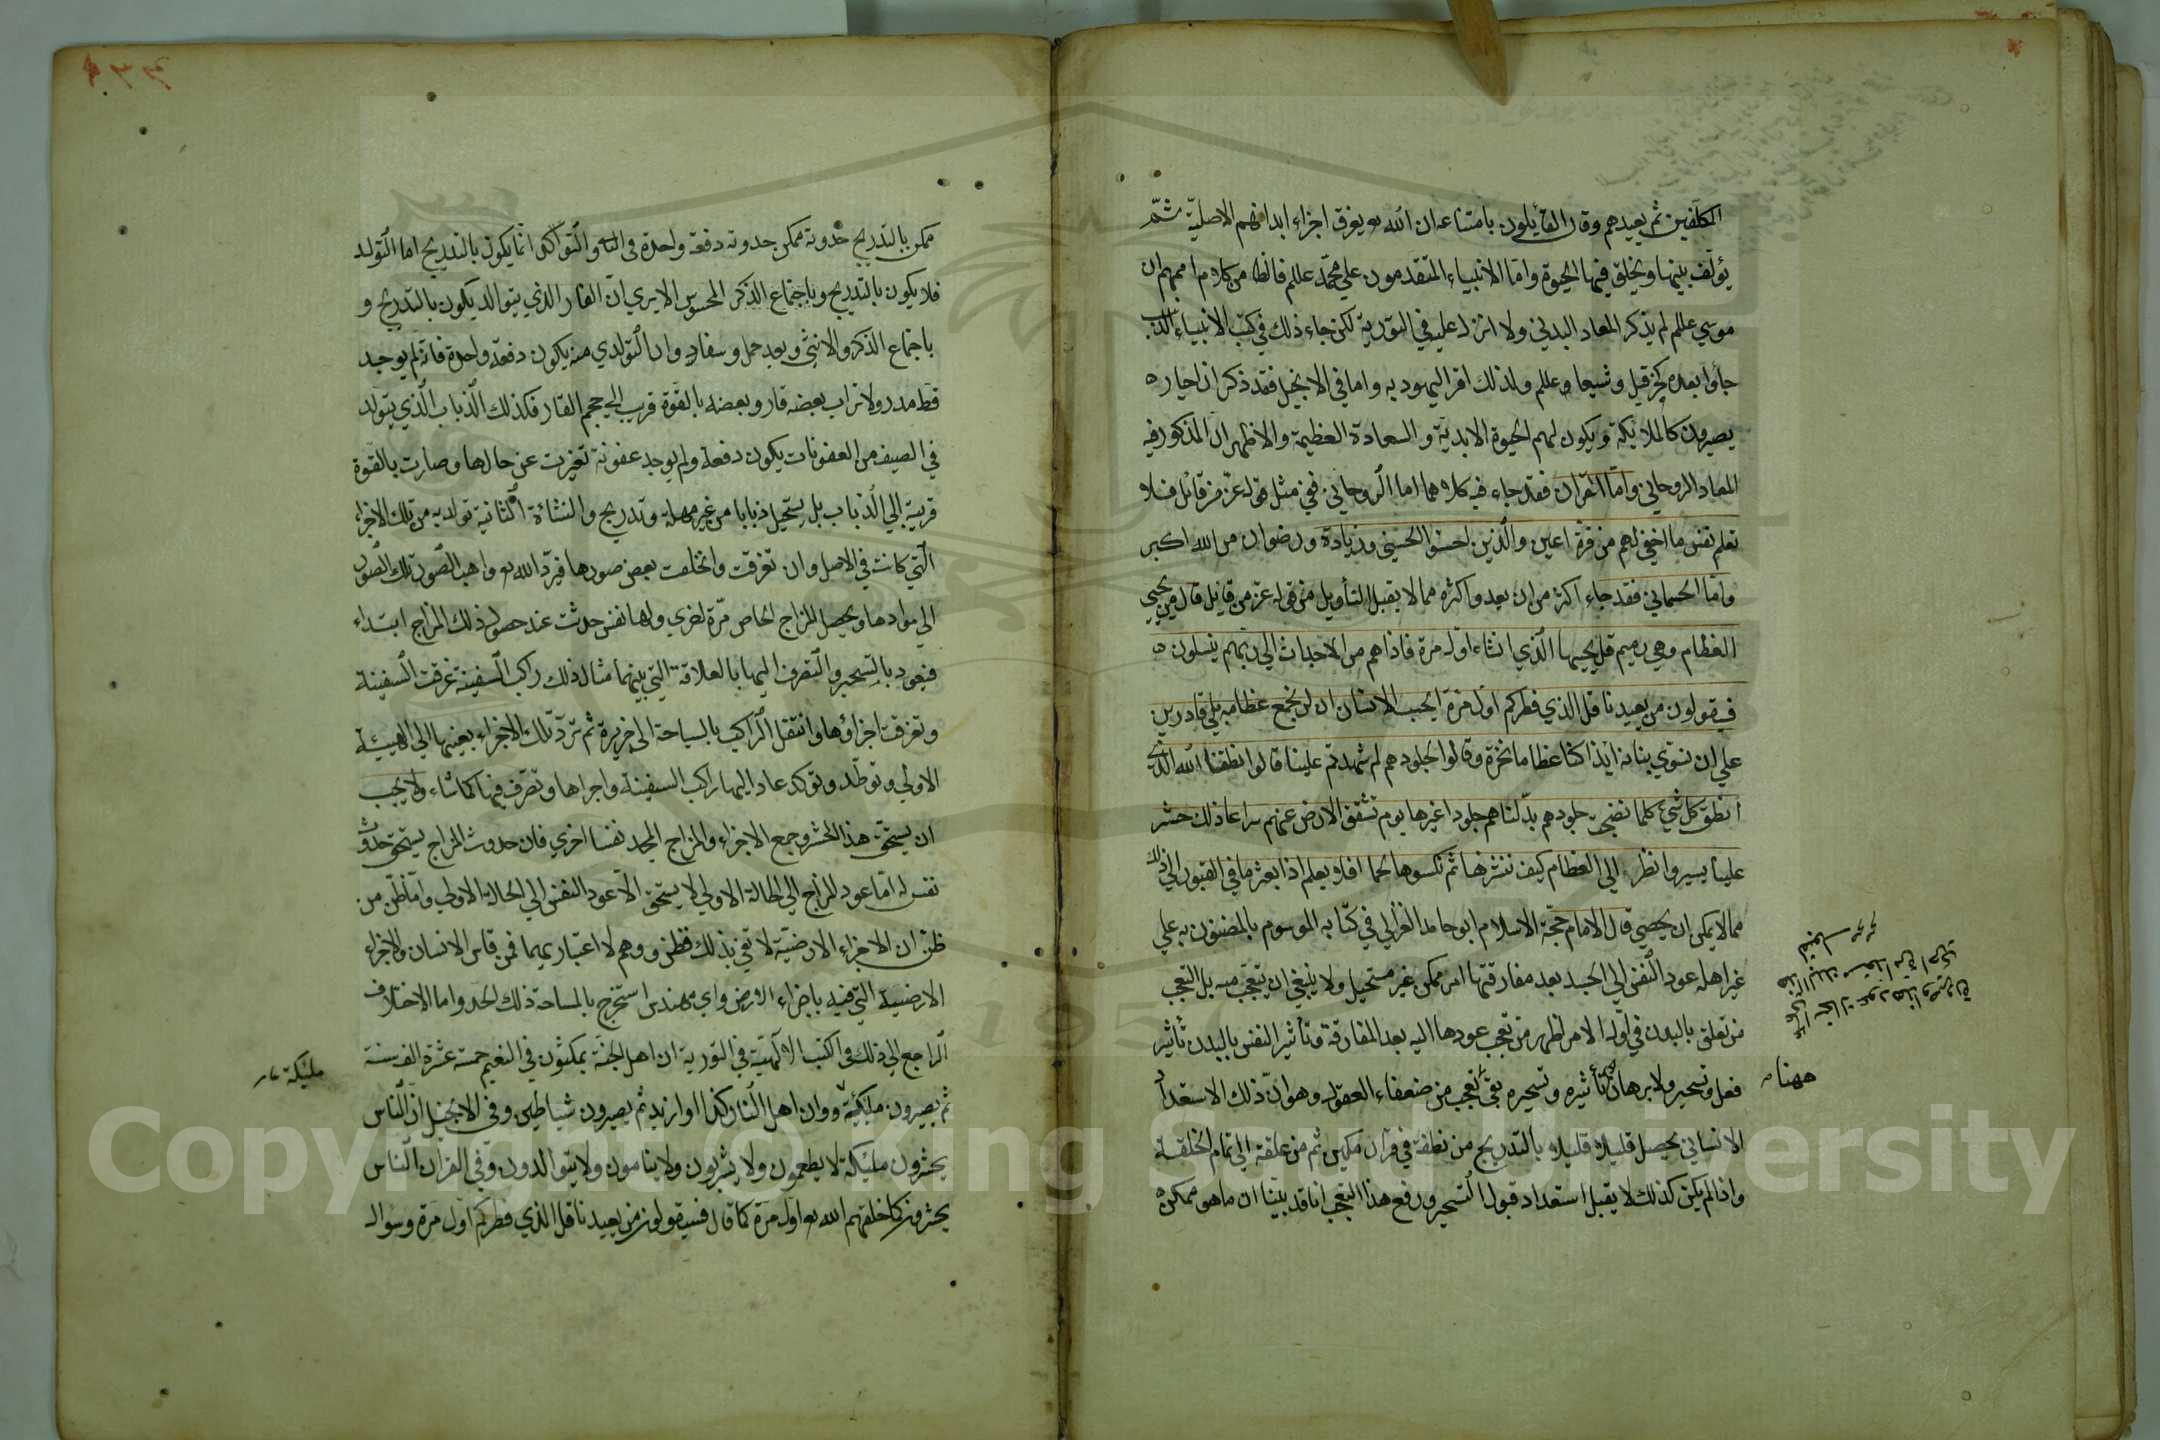 المكلفين ثم يعيدهم وقال القائلون بامتناعه ان الله تع يفرق اجزاء ابدانهم الاصلية ثم
يؤلف بينها ويخلق فيها الحيوة واما الانبياء المتقدمون على محمد عللم فالظ من كلام اممهم ان
موسى عللم لم يذكر المعاد البدني ولا انزل عليه في التورية لكن جاء ذلك في كتب الانبياء الذين
جاوا بعده كحزقيل وشعيا عللم ولذلك اقر اليهود به واما في الانجيل فقد ذكر ان اخيار
يصيرون كالملايكة ويكون لهم الحيوة الابدية والسعادة العظيمة والاظهر ان المذكور فيه
المعاد الروحاني واما القران فقد جاء فيه كلاهما اما الروحاني ففي مثل قوله عز من قائل فلا
تعلم نفس ما اخفي لهم من قرة اعين والذين احسنوا الحسنى وزيادة ورضوان من الله اكبر
واما الجسماني فقد جاء اكثر من ان يعد واكثره مما لا يقبل التأويل من قوله عز من قايل قال من يحيي
العظام وهي رميم قل يحييها الذي انشاء اول مرة فاذا هم من الاجداث الى ربهم ينسلون
فسيقولون من يعيدنا قل الذي فطركم اول مرة ايحسب الانسان ان لن نجمع عظامه بلى قادرين
على ان نسوي بنانه ائذا كنا عظاما نخرة وقالوا لجلودهم لم شهدتم علينا قالوا انطقنا الله الذي
انطق كل شيء كلما نضجت جلودهم بدلناهم جلودا غيرها يوم تشقق الارض عنهم سراعا ذلك حشر
علينا يسير وانظر الى العظام كيف ننشزها ثم نكسوها لحما افلا يعلم اذا بعثر ما في القبور الى ذلك
مما لا يمكن ان يحصى قال الامام حجة الاسلام ابو حامد الغزالي في كتابه الموسوم بالمضنون به على
غير اهله عود النفس الى الجسد بعد مفارقتها امر ممكن غير مستحيل ولا ينبغي ان يتعجب منه بل التعجب
من تعلق بالبدن في اول الامر اظهر من تعجب عودها اليه بعد المفارقة وتأثير النفس بالبدن تأثير
فعل وتسخير ولا برهان تأثيره وتسخيره بقي تعجب من ضعفاء العقول وهو ان ذلك الاستعداد
ههنا
الانساني يحصل قليلا قليلا بالتدريج من نطفة في قرار مكين ثم من علقة الى تمام الخلقة
واذا لم يكن كذلك لا يقبل استعداد قبول التسخير ورفع هذا التعجب انا قد بينا ان ما هو ممكن
ممكن بالتدريج حدوثه ممكن حدوثه دفعة واحدة في التوالد انما يكون بالتدريج اما التولد
فلا يكون بالتدريج وباجتماع الذكر المحسوس الا يرى ان الفار الذي يتوالد يكون بالتدريج و
باجتماع الذكر والانثى وبعد حمل وسفاد وان التولدي منه يكون دفعة واحدة فانه لم يوجد
قط مدر ولا تراب بعضه فار وبعضه بالقوة قريب الى حجم الفار فكذلك الذباب الذي يتولد
في الصيف من العفونات يكون دفعة ولم يوجد عفونة تغيرت عن حالها وصارت بالقوة
قريبة الى الذباب بل يستحيل ذبابا من غير مهلة وتدريج والنشاءة الثانية تولديه من تلك الاجزاء
التي كانت في الاصل وان تفرقت وانخلعت بعض صورها فيرد الله تع واهب الصور تلك الصور
الى موادها ويحصل المزاج الخاص مرة اخرى ولها نفس حدثت عند حصول ذلك المزاج ابتداء
فيعود بالتسخير والتصرف اليها بالعلاقة التي بينهما مثال ذلك راكب السفينة غرقت السفينة
وتفرقت اجزاؤها وانتقل الراكب بالسباحة الى جزيرة ثم ترد تلك الاجزاء بعينها الى الهيئة
الاولى وتوطد وتؤكد عاد اليها راكب السفينة واجراها وتصرف فيها كما شاء ولا يجب
ان يستحق هذا الحشر وجمع الاجزاء والمزاج المجدد نفسا اخرى فان حدوث المزاج يستحق حدوث
نفس له اما عود المزاج الى الحالة الاولى لا يستحق الا عود النفس الى الحالة الاولى واما ظن من
ظن ان الاجزاء الارضية لا تفي بذلك فظن ووهم لا اعتبار بهما فمن قاس الانسان والاجزاء
الارضية التي فيه باجزاء الارض واي مهندس استخرج بالمساحة ذلك الحد واما الاختلاف
الراجع الى ذلك في الكتب الالهية في التورية ان اهل الجنة يمكثون في النعيم خمسة عشرة الف سنة
مليكة
ثم يصيرون مليكة وان اهل النار كذا او ازيد ثم يصيرون شياطين وفي الانجيل ان الناس
يحشرون مليكة لا يطعمون ولا يشربون ولا ينامون ولا يتوالدون وفي القران الناس
يحشرون كما خلقهم الله تع اول مرة كما قال فسيقولون من يعيدنا قل الذي فطركم اول مرة وسوال
Copyright © King Saud University
1957